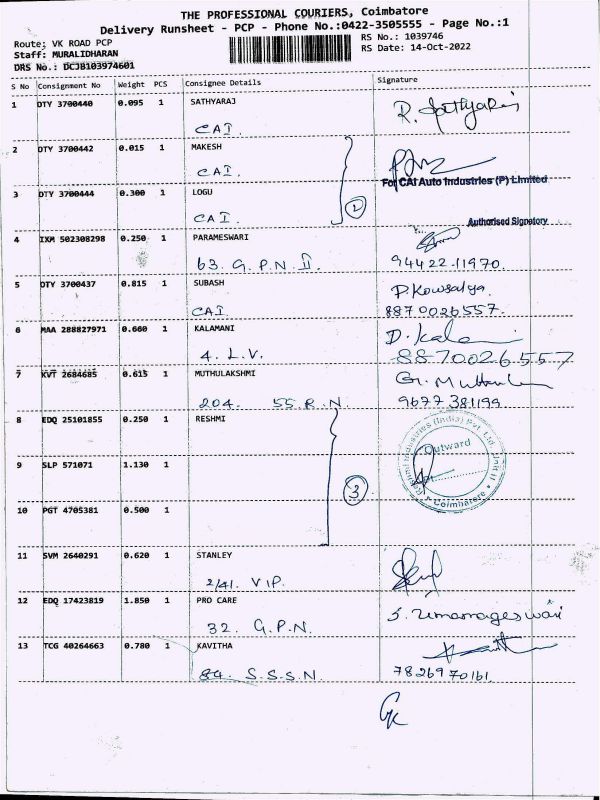 THE PROFESSIONAL COURIERS, Coimbatore
Delivery Runsheet - PCP - Phone No.:0422-3505555 - Page No.:1
Route: VK ROAD PCP
RS No.: 1039746
Staff: MURALIDHARAN
RS Date: 14-Oct-2022
DRS No.: DCJB103974601
S No Consignment No Weight PCS Consignee Details Signature
1 DTY 3700440 0.095 1 SATHYARAJ R. Sathyaraj
CAI.
2 DTY 3700442 0.015 1 MAKESH
CAI.
For CAI Auto Industries (P) Limited
3 DTY 3700444 0.300 1 LOGU
2
CAI.
Authorised Signatory
4 IXM 502308298 0.250 1 PARAMESWARI
63. G.P.N. II. 94422-11970.
5 DTY 3700437 0.815 1 SUBASH P. Kowsalya.
CAI. 8870026557.
6 MAA 288827971 0.660 1 KALAMANI D. Kala
4. L.V. 8870026557
7 KVT 2684685 0.615 1 MUTHULAKSHMI G. Muthu
204. 55 R.N 9677381199
8 EDQ 25101855 0.250 1 RESHMI
Industries (India) Pvt. Ltd. Unit II
Outward
Coimbatore
9 SLP 571071 1.130 1
3
10 PGT 4705381 0.500 1
11 SVM 2640291 0.620 1 STANLEY
2/41. VIP.
12 EDQ 17423819 1.850 1 PRO CARE S. Umamageswari
32. G.P.N.
13 TCG 40264663 0.780 1 KAVITHA
84. S.S.S.N. 7826970161.